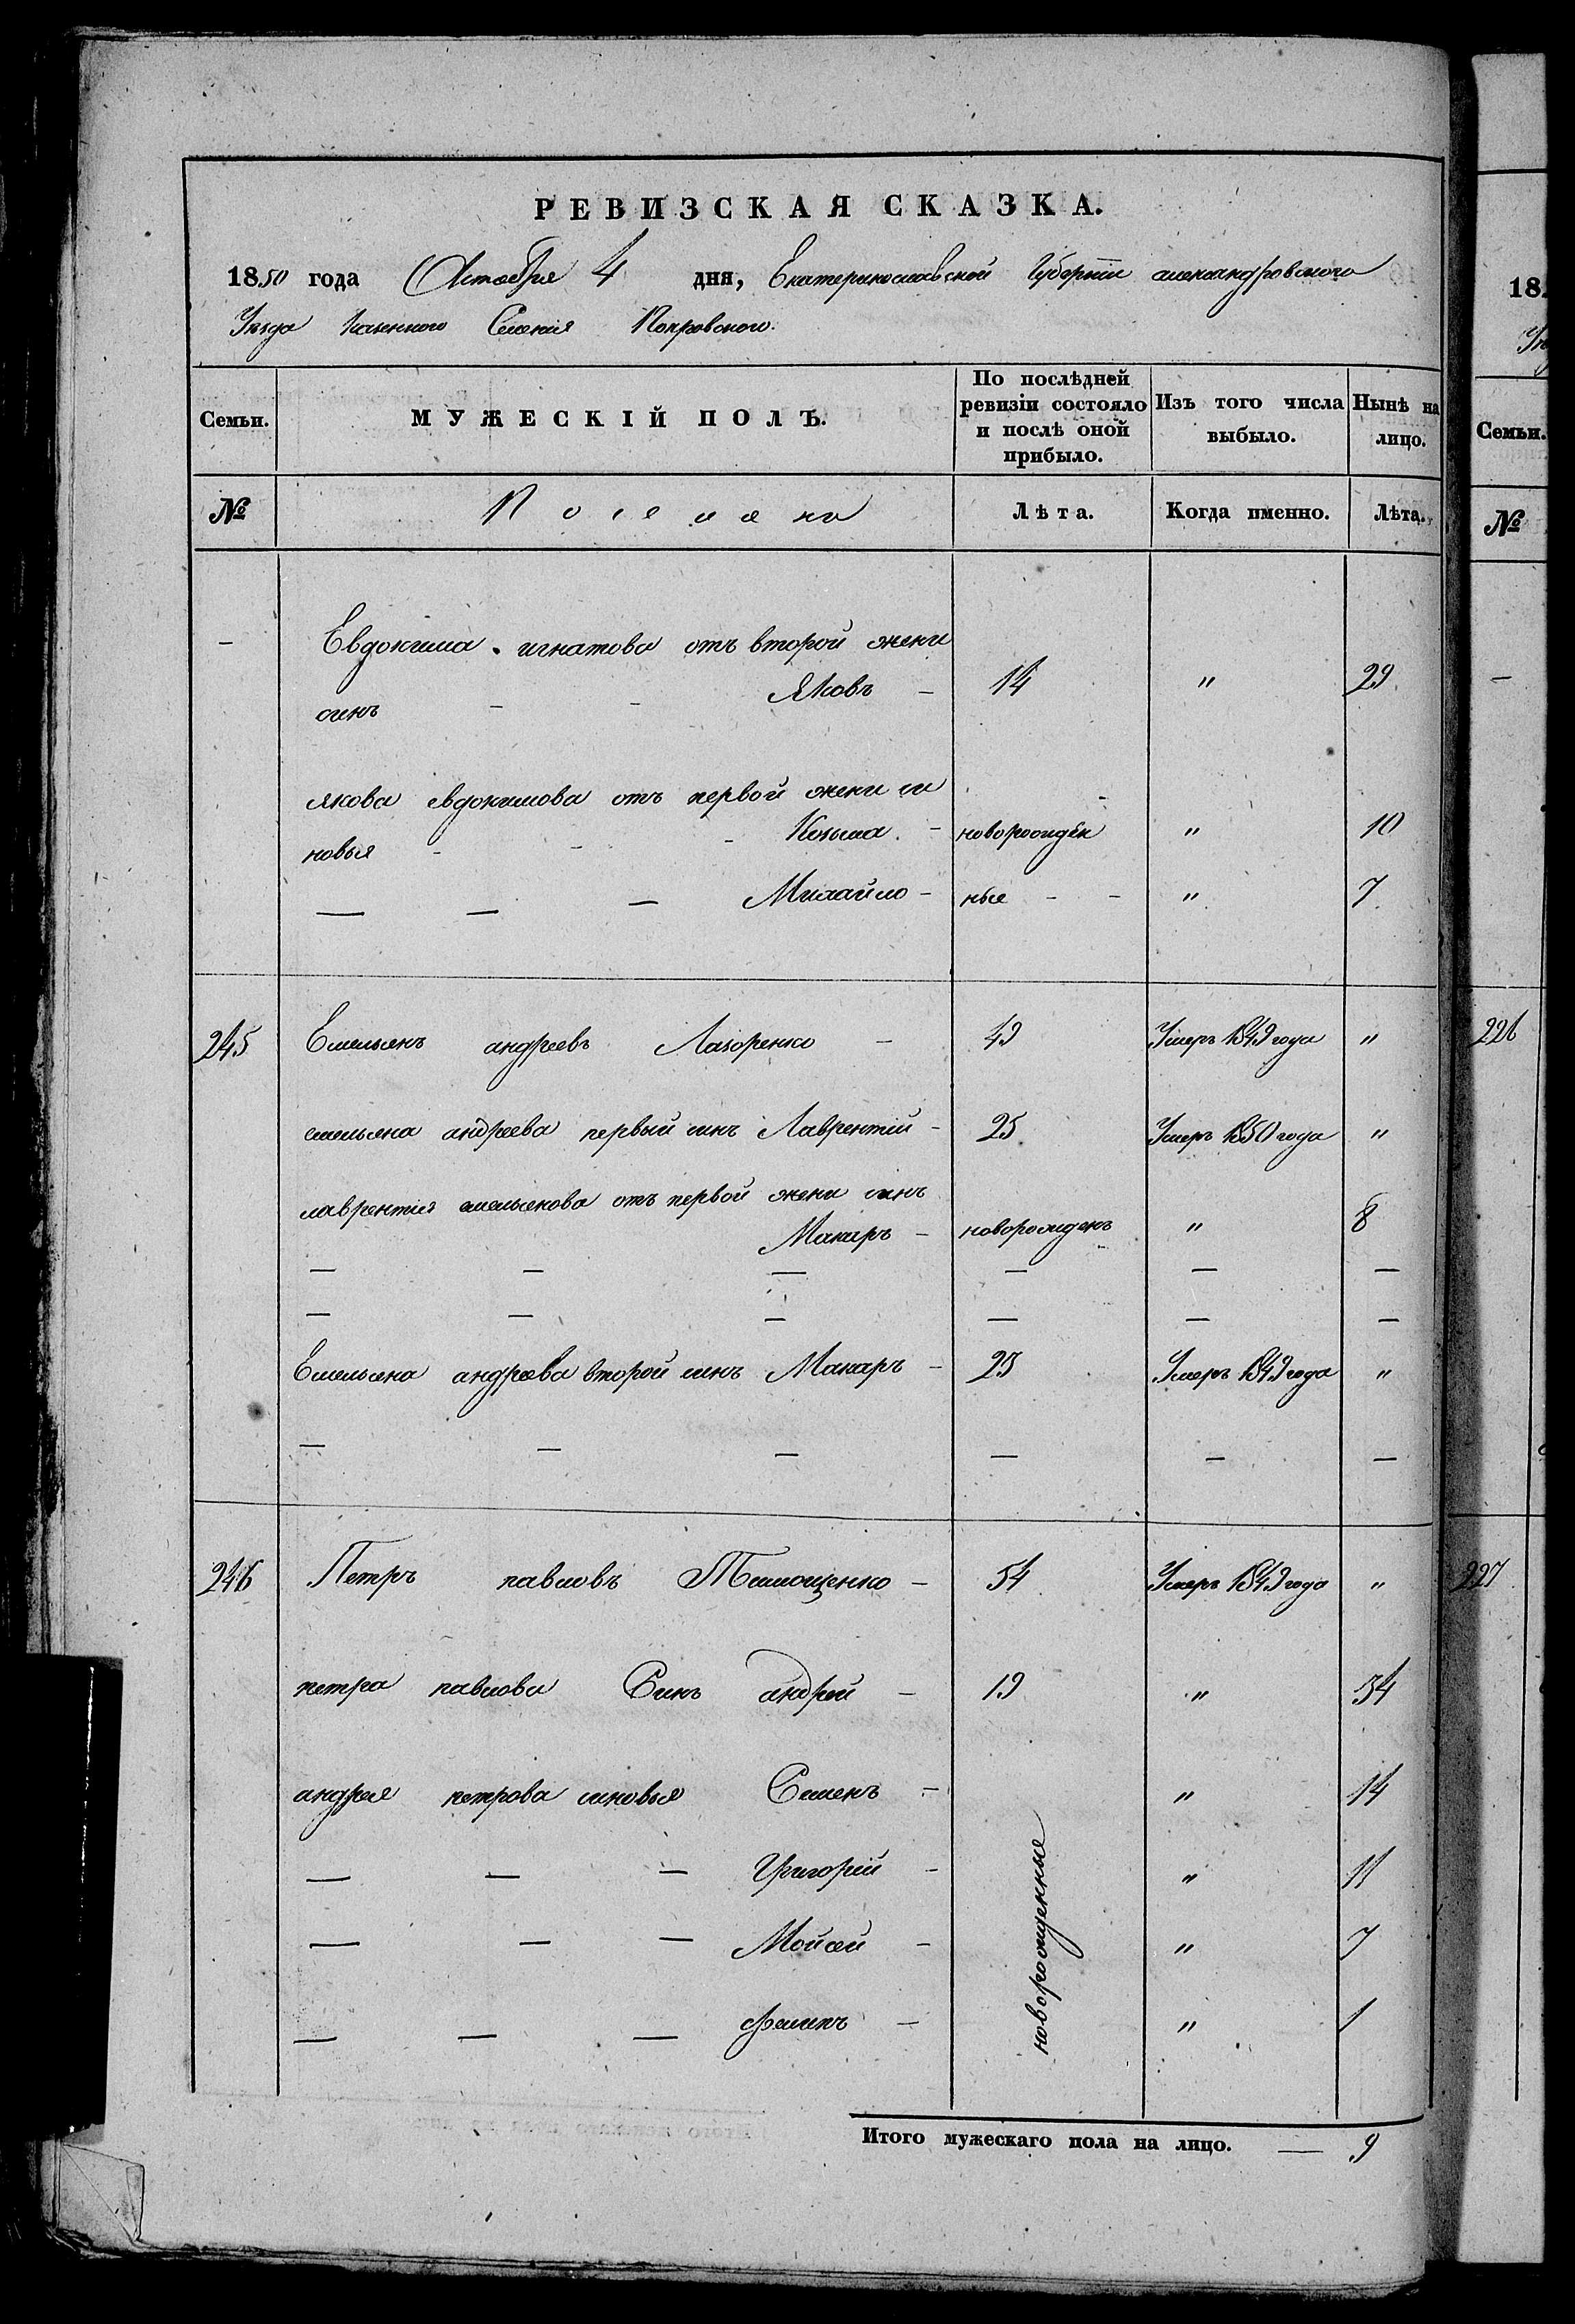 РЕВИЗСКАЯ СКАЗКА.
1850 года Октября 4 дня, Екатеринославской Губернiи александровского
Уезда Казенного Селения Покровского.
Семьи. МУЖЕСКIЙ ПОЛЪ. По послѣдней ревизiи состояло и послѣ оной прибыло. Изъ того числа выбыло. Нынѣ на лицо.
№ Поселяне Лѣта. Когда именно. Лѣта.
Евдокима игнатова отъ второй жени
синъ Яковъ 14 " 29
якова евдокимова отъ первой жени си
новья Козьма новорожден " 10
Михайло ные " 7
245 Емельянъ андреевъ Лазоренко 49 Умеръ 1849 года "
емельяна андреева первый синъ Лаврентiй 25 Умеръ 1850 года "
лаврентiя емельянова отъ первой жени синъ
Макаръ новорожденъ " 8
Емельяна андреева второй синъ Макаръ 23 Умеръ 1849 года "
246 Петръ павловъ Тимощенко 54 Умеръ 1849 года "
петра павлова Синъ андрей 19 " 34
андрея петрова синовья Семенъ " 14
Григорiй " 11
Мойсей " 7
" 1
новорожденные
Итого мужескаго пола на лицо. 9
18
Семьи.
№
226
227